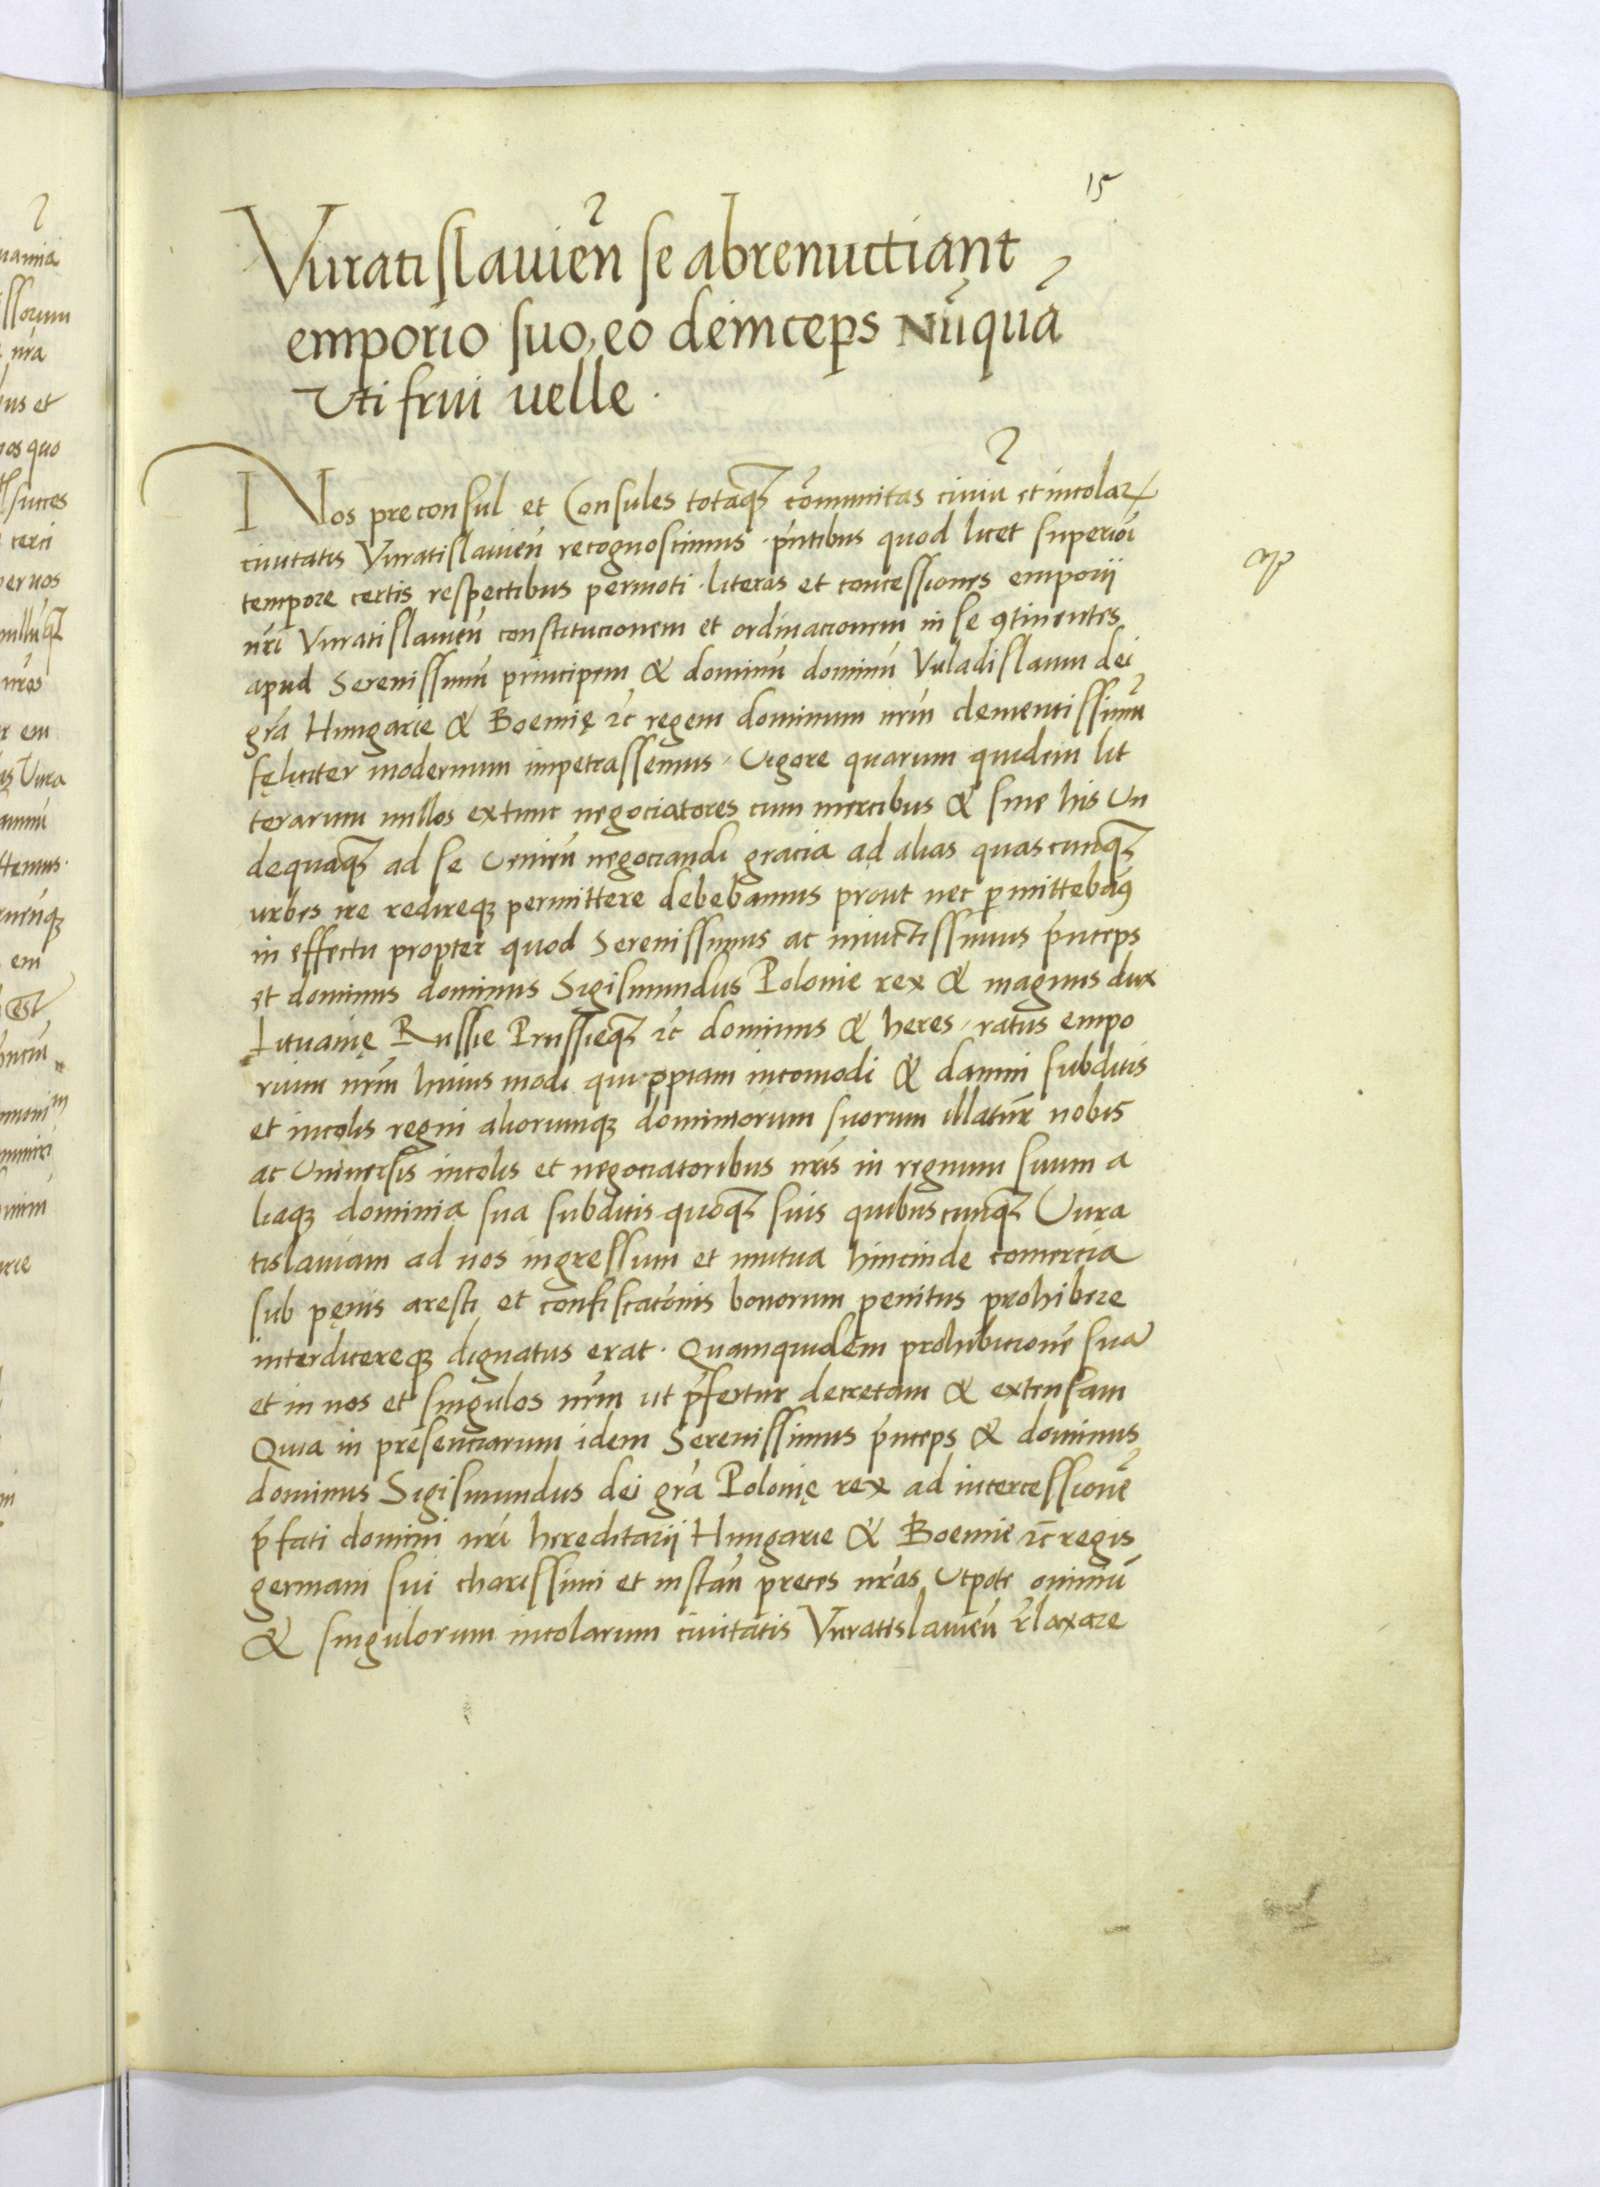 15
Vuratislauien̄ se abrenucciant
emporio suo, eo deinceps Nūquā
Vti frui uelle.
Nos preconsul et Consules totaq̃ cōmunitas ciuiū et incolaꝝ
ciuitatis Vuratislauien̄ recognoscimus p̄ntibus quod licet superiori
tempore certis respectibus permoti literas et concessiones emporii
nr̄i Vuratislauien̄ constitucionem et ordinacionem in se ꝯtinentes
apud Serenissimū principem & dominū dominū Vuladislaum dei
gr̄a Hungarie & Boemię ⁊c̄ regem dominum nr̄m clementissimū
fęliciter modernum impetrassemus, Vigore quarum quidem lit
terarum nullos extunc negociatores cum mercibus & sine his Vn
dequaq̃ ad se Venien̄ negociandi gracia ad alias quascunq̃
urbes ire redireqꝫ permittere debebamus prout nec ꝑmittebamꝰ
in effectu propter quod Serenissimus ac inuictissimus p̄nceps
et dominus dominus Sigismundus Polonie rex & magnus dux
Lituanię Russie Prussieq̃ ⁊c̄ dominus & heres, ratus empo
rium nr̄m huiusmodi quippiam incomodi & damni subditis
et incolis regni aliorumqꝫ dominiorum suorum illaturū nobis
ac Vniuersis incolis et negociatoribus nr̄is in regnum suum a
liaqꝫ dominia sua subditis quoq̃ suis quibuscunq̃ Vura
tislauiam ad nos ingressum et mutua hincinde comercia
sub pęnis aresti et confiscacōnis bonorum penitus prohibere
interdicereqꝫ dignatus erat. Quamquidem prohibicionē suā
et in nos et singulos nr̄m ut p̄fertur decretam & extensam
Quia in presenciarum idem Serenissimus p̄nceps & dominus
dominus Sigismundus dei gr̄a Polonię rex ad intercessionē
p̄fati domini nr̄i hereditarii Hungarie & Boemie ⁊c̄ regis
germani sui charissimi et instan̄ preces nr̄as Vtpote omniū
& singulorum incolarum ciuitatis Vuratislauien̄ r̄laxare